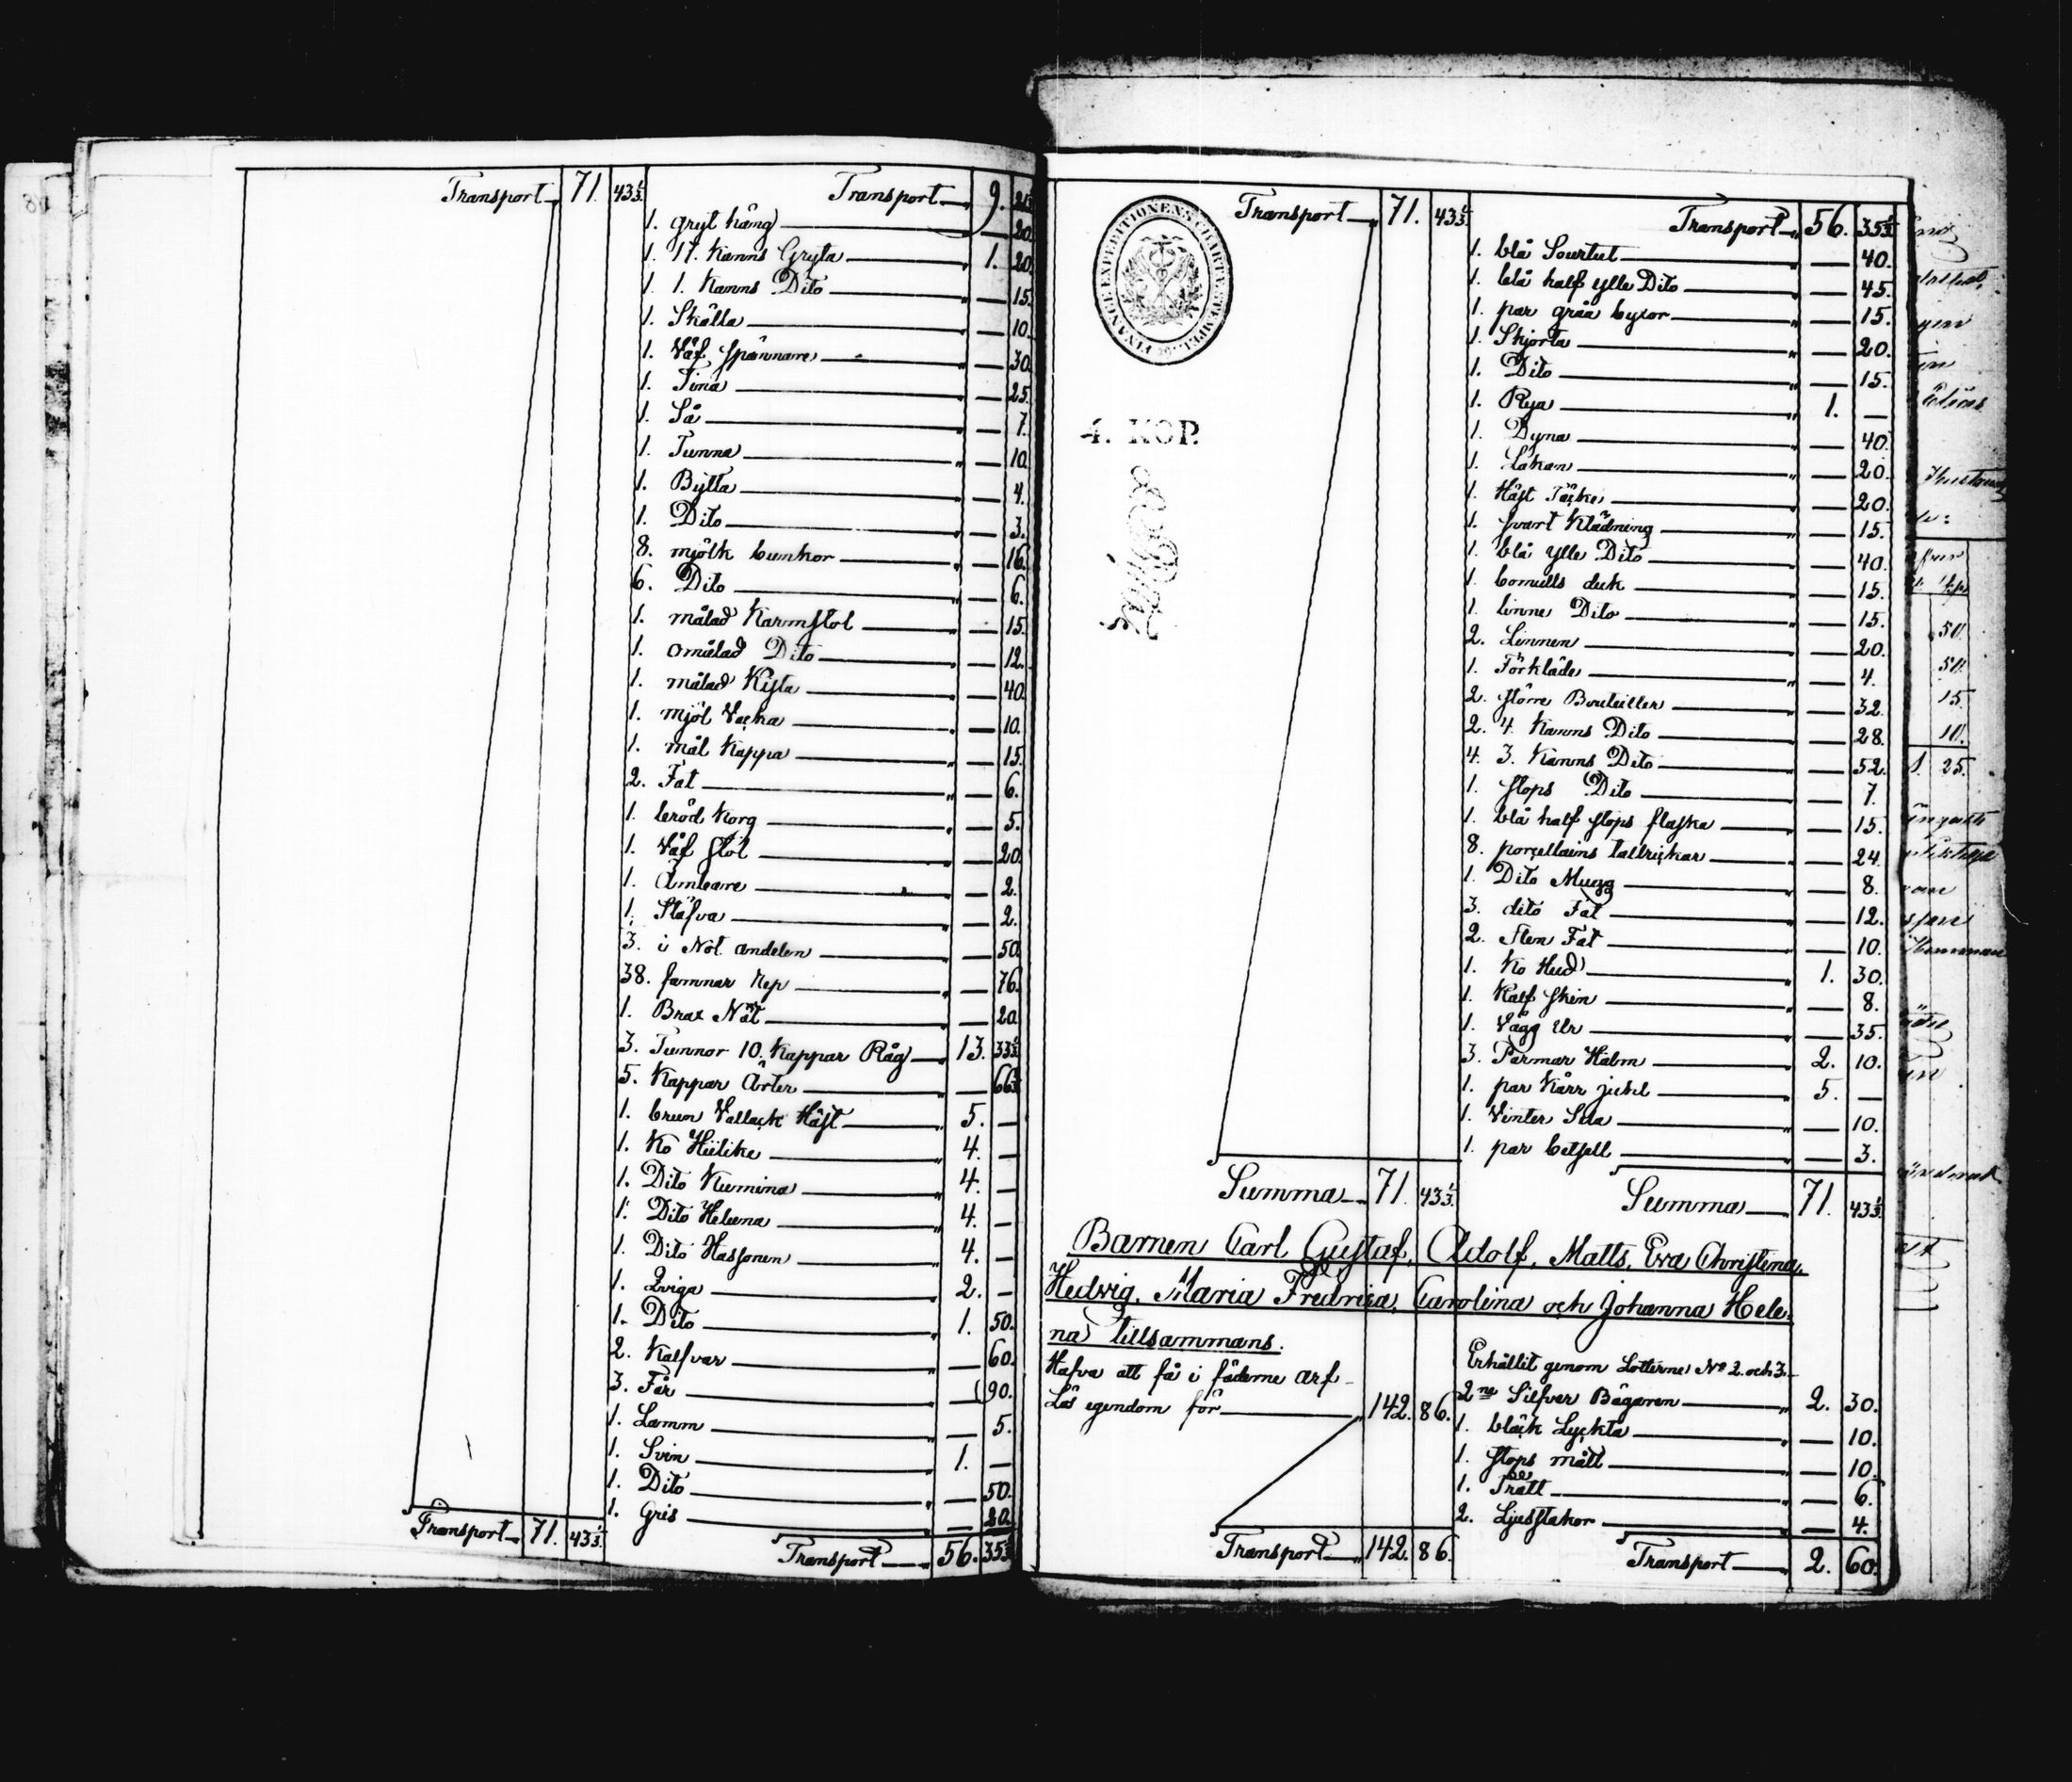 Transport 71. 43⅓
Transport 9. 21⅓
1. gryt häng — 20.
1. 17. Kanns Gryta 1. 20.
1. 1. Kanns Dito — 15.
1. Skålla — 10.
1. Väf spännare — 30.
1. Tina — 25.
1. Så — 7.
1. Tunna — 10.
1. Bytta — 4.
1. Dito — 3.
8. mjölk bunkor — 16.
6. Dito — 6.
1. målad Karmstol — 15.
1. omålad Dito — 12.
1. målad Kista — 40.
1. Mjöl Vacka — 10.
1. mål Kappa — 15.
2. Fat — 6.
1. bröd Korg — 5.
1. Väf stol — 20.
1. Ämbare — 2.
1. Stäfva — 2.
3. i Not andelen — 50.
38. famnar Rep — 76.
1. Brax Nät — 20.
3. Tunnor 10. Kappar Råg 13. 33⅓
5. Kappar Ärter — 66⅔
1. brun Vallack Häst 5. —
1. Ko Hulike 4. —
1. Dito Kumina 4. —
1. Dito Heluna 4. —
1. Dito Hassonen 4. —
1. Qviga 2. —
1. Dito 1. 50.
2. Kalfvar — 60.
3. Får — 90.
1. Lamm — 5.
1. Svin 1. —
1. Dito — 50.
1. Gris — 20.
Transport 71. 43⅓
Transport 56. 35⅓
FINANCE EXPEDITIONENS CHARTÆ STEMPEL
4. KOP.
Transport 71. 43⅓
Transport 56. 35⅓
1. blå Sourtut — 40.
1. blå half ylle Dito — 45.
1. par gråa byxor — 15.
1. Skjorta — 20.
1. Dito — 15.
1. Rya 1. —
1. Dyna — 40.
1. Lakan — 20.
1. Häst Täcke — 20.
1. svart Klädning — 15.
1. blå ylle Dito — 40.
1. bomulls duk — 15.
1. linne Dito — 15.
2. Linnen — 20.
1. Förkläde — 4.
2. större Bouteiller — 32.
2. 4. Kanns Dito — 28.
4. 3. Kanns Dito — 52.
1. stops Dito — 7.
1. blå half stops flaska — 15.
8. porcellains tallrickar — 24.
1. Dito Mugg — 8.
3. dito Fat — 12.
2. Sten Fat — 10.
1. Ko Hud 1. 30.
1. Kalf skin — 8.
1. Vägg Ur — 35.
3. Parmar Halm 2. 10.
1. par Kärr jukel 5. —
1. Vinter Sela — 10.
1. par betsell — 3.
Summa 71. 43⅓
Summa 71. 43⅓
Barnen Carl Gustaf, Adolf, Matts, Eva Christina,
Hedvig, Maria Fredrica, Carolina och Johanna Hele-
na tillsammans.
Hafva att få i fäderne arf
Lös egendom för 142. 86.
Erhållit genom Lotterne No 2. och 3.
2ne Silfver Bägaren 2. 30.
1. bläck Lyckta — 10.
1. stops mått — 10.
1. Tratt — 6.
2. Ljusstakar — 4.
Transport 142. 86.
Transport 2. 60.
50.
50.
15.
10.
25.